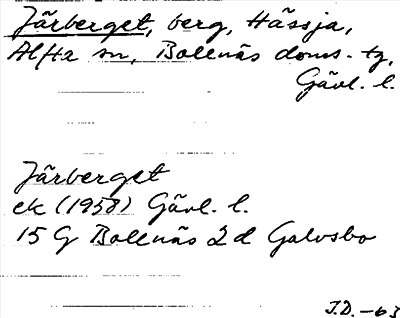 Järberget, berg, Hässja,
Alfta sn, Bollnäs doms. tg,
Gävl. l.
Järberget
ek (1958) Gävl. l.
15 G Bollnäs 2d Galvsbo
J.D. -63